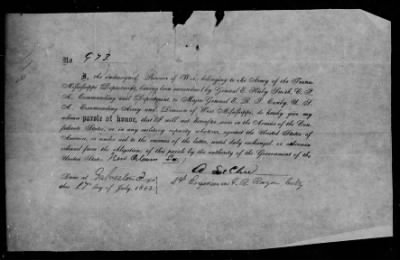 No 973
I, the undersigned, Prisoner of War, belonging to the Army of the Trans-
Mississippi Department, having been surrendered by General E. Kirby Smith, C. S.
A., Commanding said Department, to Major General E. R. S. Canby, U. S.
A., Commanding Army and Division of West Mississippi, do hereby give my
solemn parole of honor, that I will not hereafter serve in the Armies of the Con-
federate States, or in any military capacity whatever, against the United States of
America, or render aid to the enemies of the latter, until duly exchanged, or otherwise
released from the obligation of this parole by the authority of the Government of the
United States. New Orleans La
Done at Galveston Texas
this 17 day of July 1865